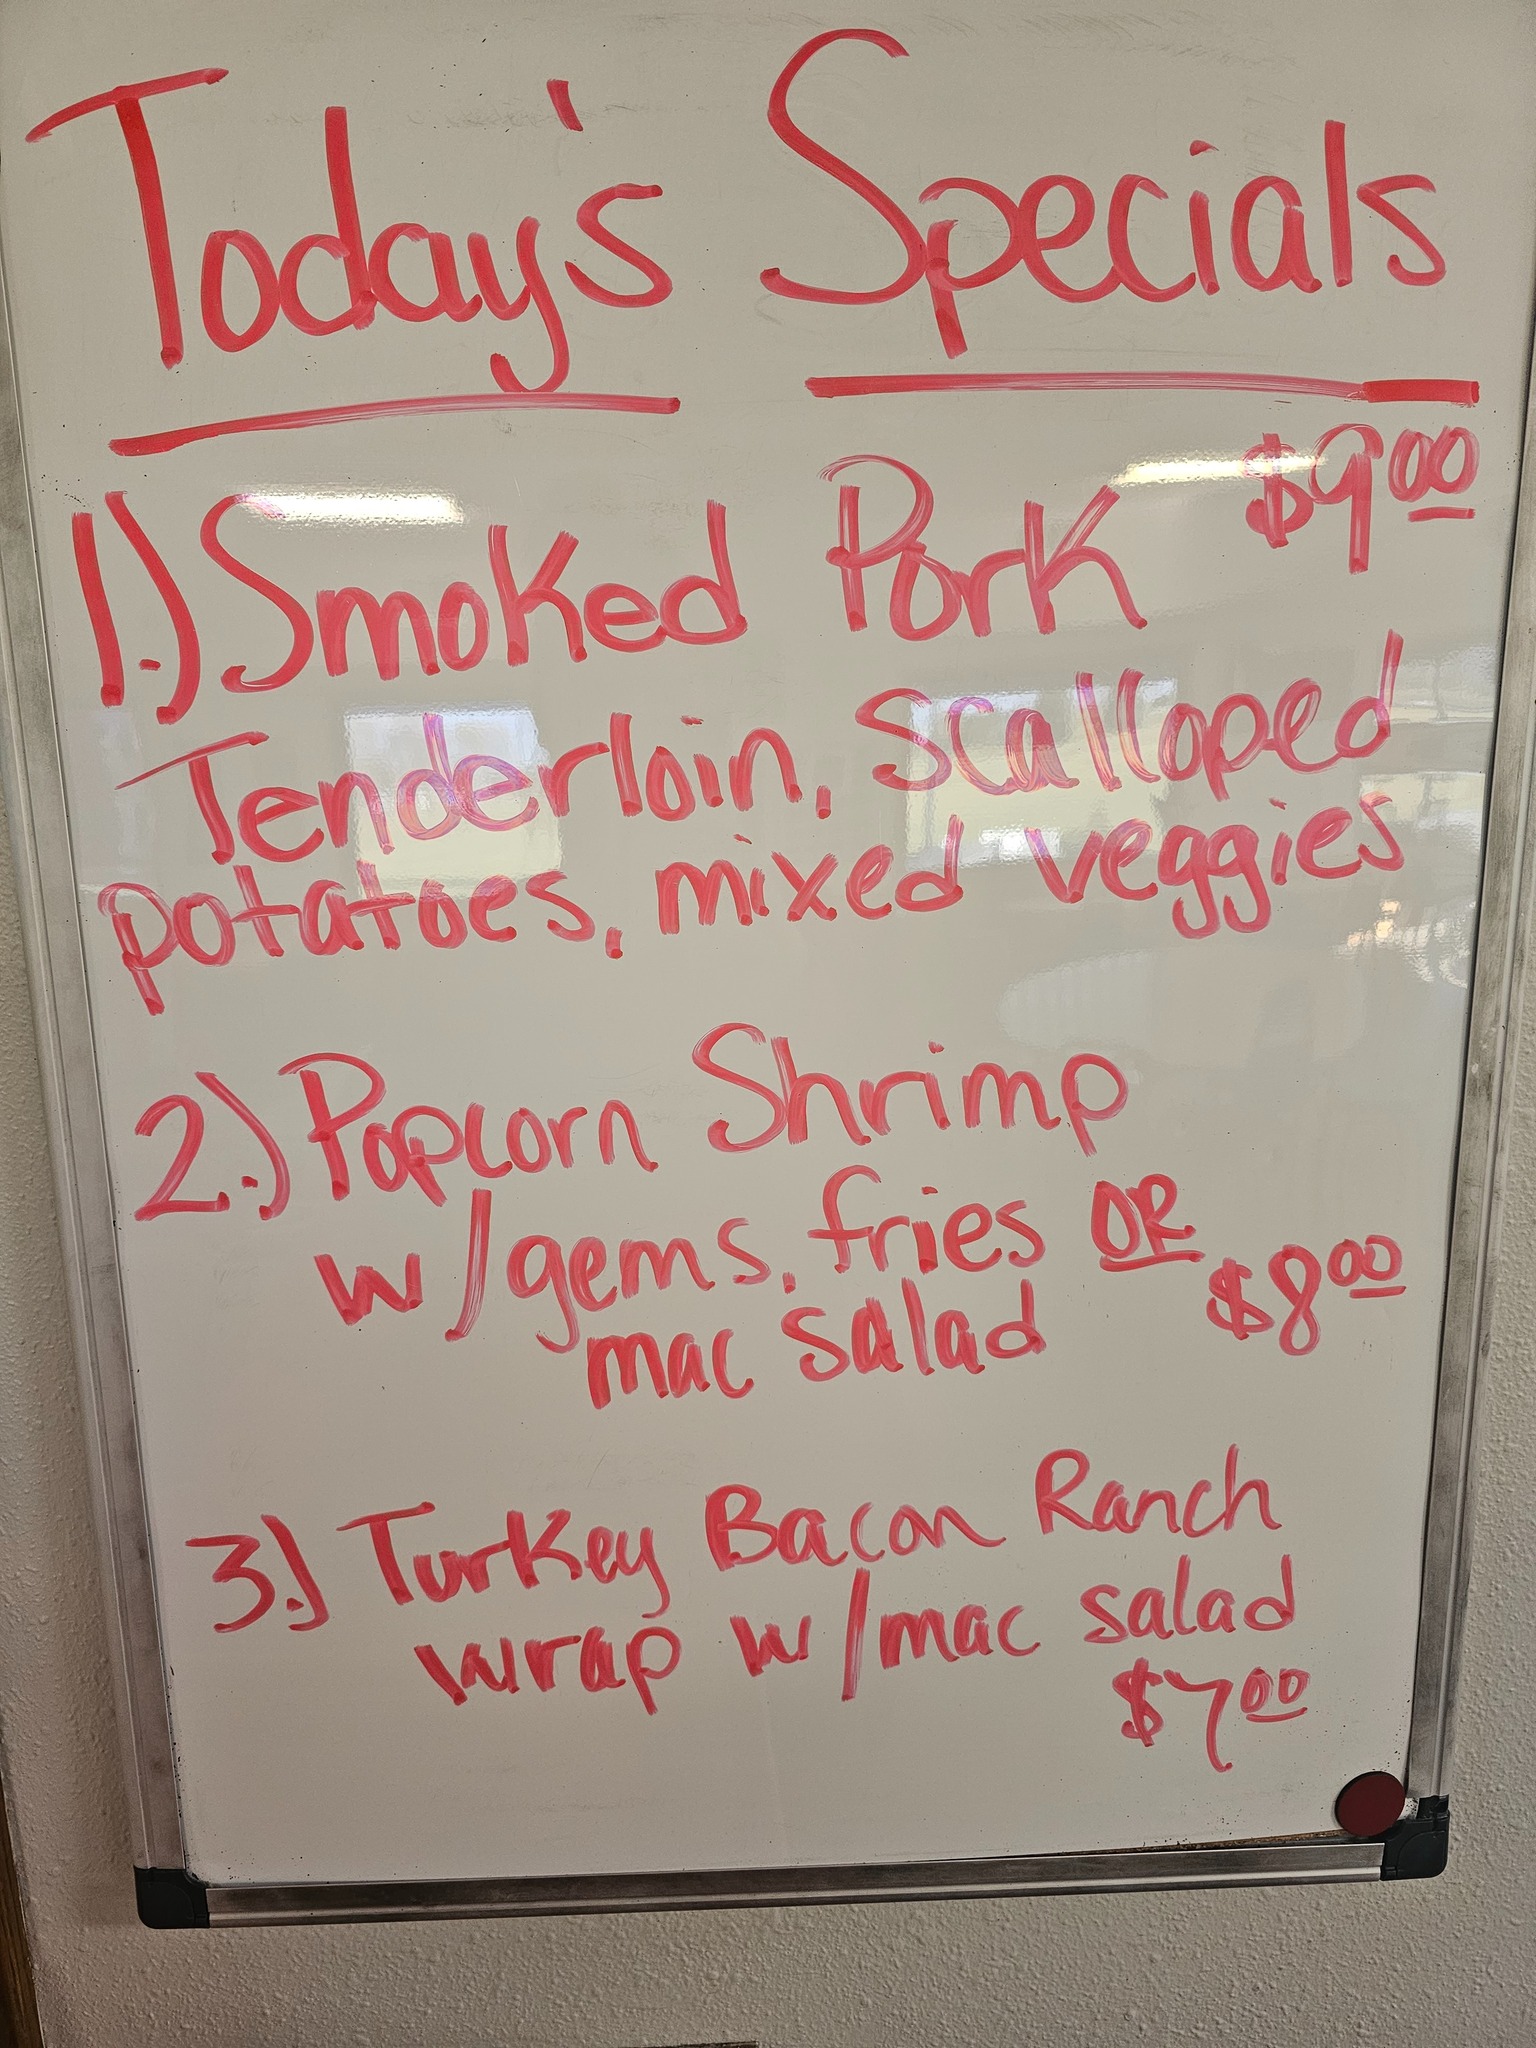 Today's Specials
1.) Smoked Pork $9.00
Tenderloin, scalloped
potatoes, mixed veggies
2.) Popcorn Shrimp
w/gems, fries OR
mac salad $8.00
3.) Turkey Bacon Ranch
wrap w/mac salad
$7.00